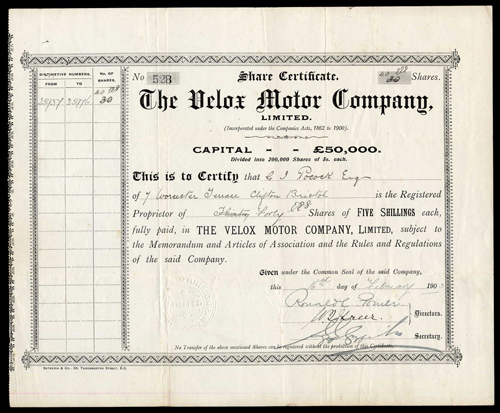 DISTINCTIVE NUMBERS. No. OF SHARES.
FROM TO
30
No 528 Share Certificate. 40 30 Shares.
The Velox Motor Company,
LIMITED.
(Incorporated under the Companies Acts, 1862 to 1900).
CAPITAL - - £50,000.
Divided into 200,000 Shares of 5s. each.
This is to Certify that Pocock Esq
of 7 Worcester Terrace Clifton Bristol is the Registered
Proprietor of Thirty Forty Shares of FIVE SHILLINGS each,
fully paid, in THE VELOX MOTOR COMPANY, LIMITED, subject to
the Memorandum and Articles of Association and the Rules and Regulations
of the said Company.
Given under the Common Seal of the said Company,
this 16th day of February 190
Directors.
Secretary.
No Transfer of the above mentioned Shares can be registered without the production of this Certificate.